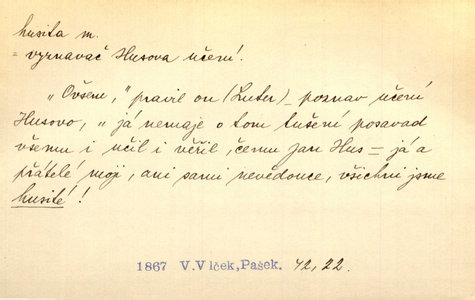 husita m.
= vyznavač Husova učení.
„Ovšem,“ pravil on (Luter) – poznav učení
Husovo, „já nemaje o tom tušení posavad
všemu i učil i věřil, čemu Jan Hus = já a
přátelé moji, ani sami nevědouce, všichni jsme
husité!
1867 V.Vlček,Pašek. 42,22.